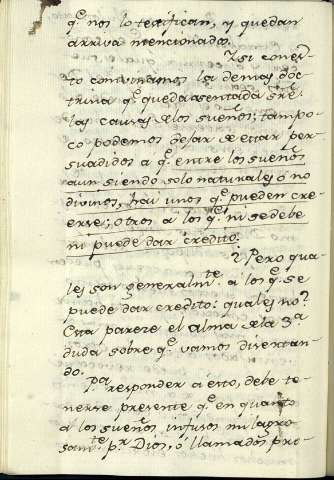 qᵉ nos lo testifican, y quedan
arriva mencionados.
Y si con es-
to convinamos la demas doc-
trina qᵉ queda asentada sʳᵉ
las causas de los sueños, tampo-
co podemos dejar de estar per-
suadidos a qᵉ entre los sueños
aun siendo solo naturales ó no
divinos, hai unos qᵉ pueden cre-
erse; otros á los qᵉ ni se debe
ni puede dar credito.
Pero qua-
les son generalmᵗᵉ á los qᵉ se
puede dar credito: quales no?
Esta parece el alma de la 3ª
duda sobre qᵉ vamos disertan-
do.
Pª responder a esto, debe te-
nerse presente qᵉ en quanto
a los sueños infusos milagro
samᵗᵉ pʳ Dios, ó llamados pro-